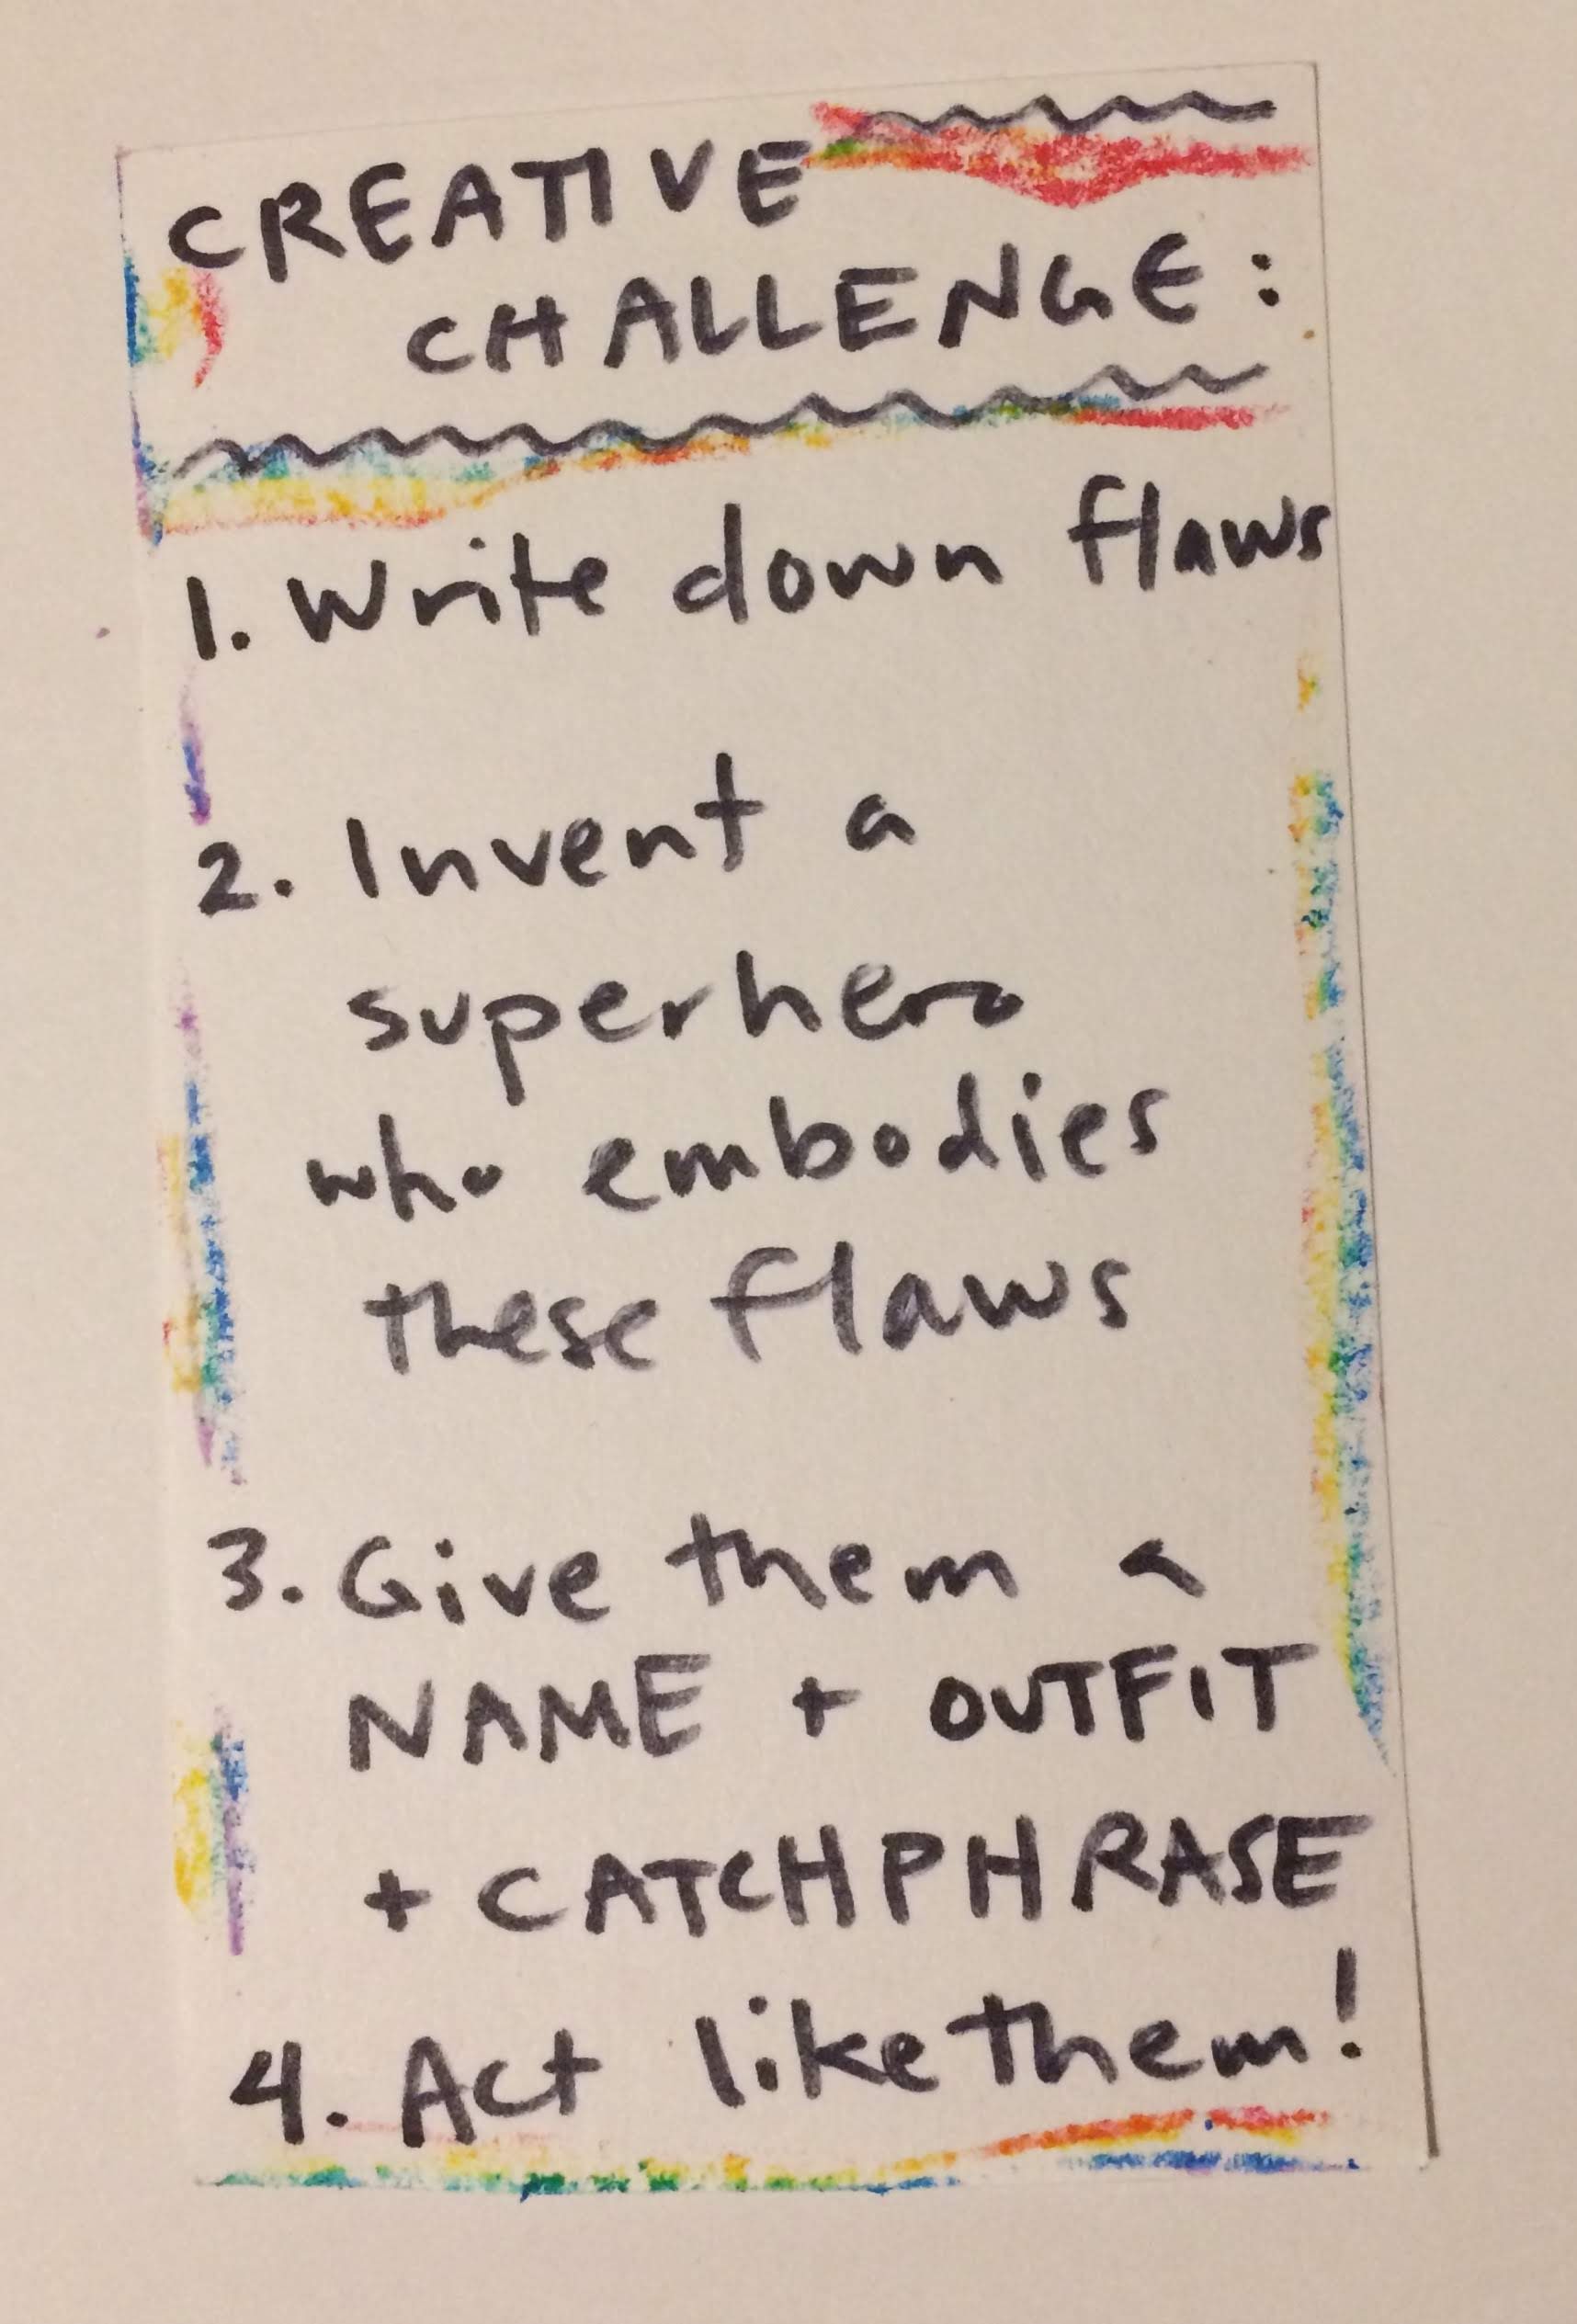 CREATIVE
CHALLENGE:
1. Write down flaws
2. Invent a
superhero
who embodies
these flaws
3. Give them a
NAME + OUTFIT
+ CATCHPHRASE
4. Act like them!